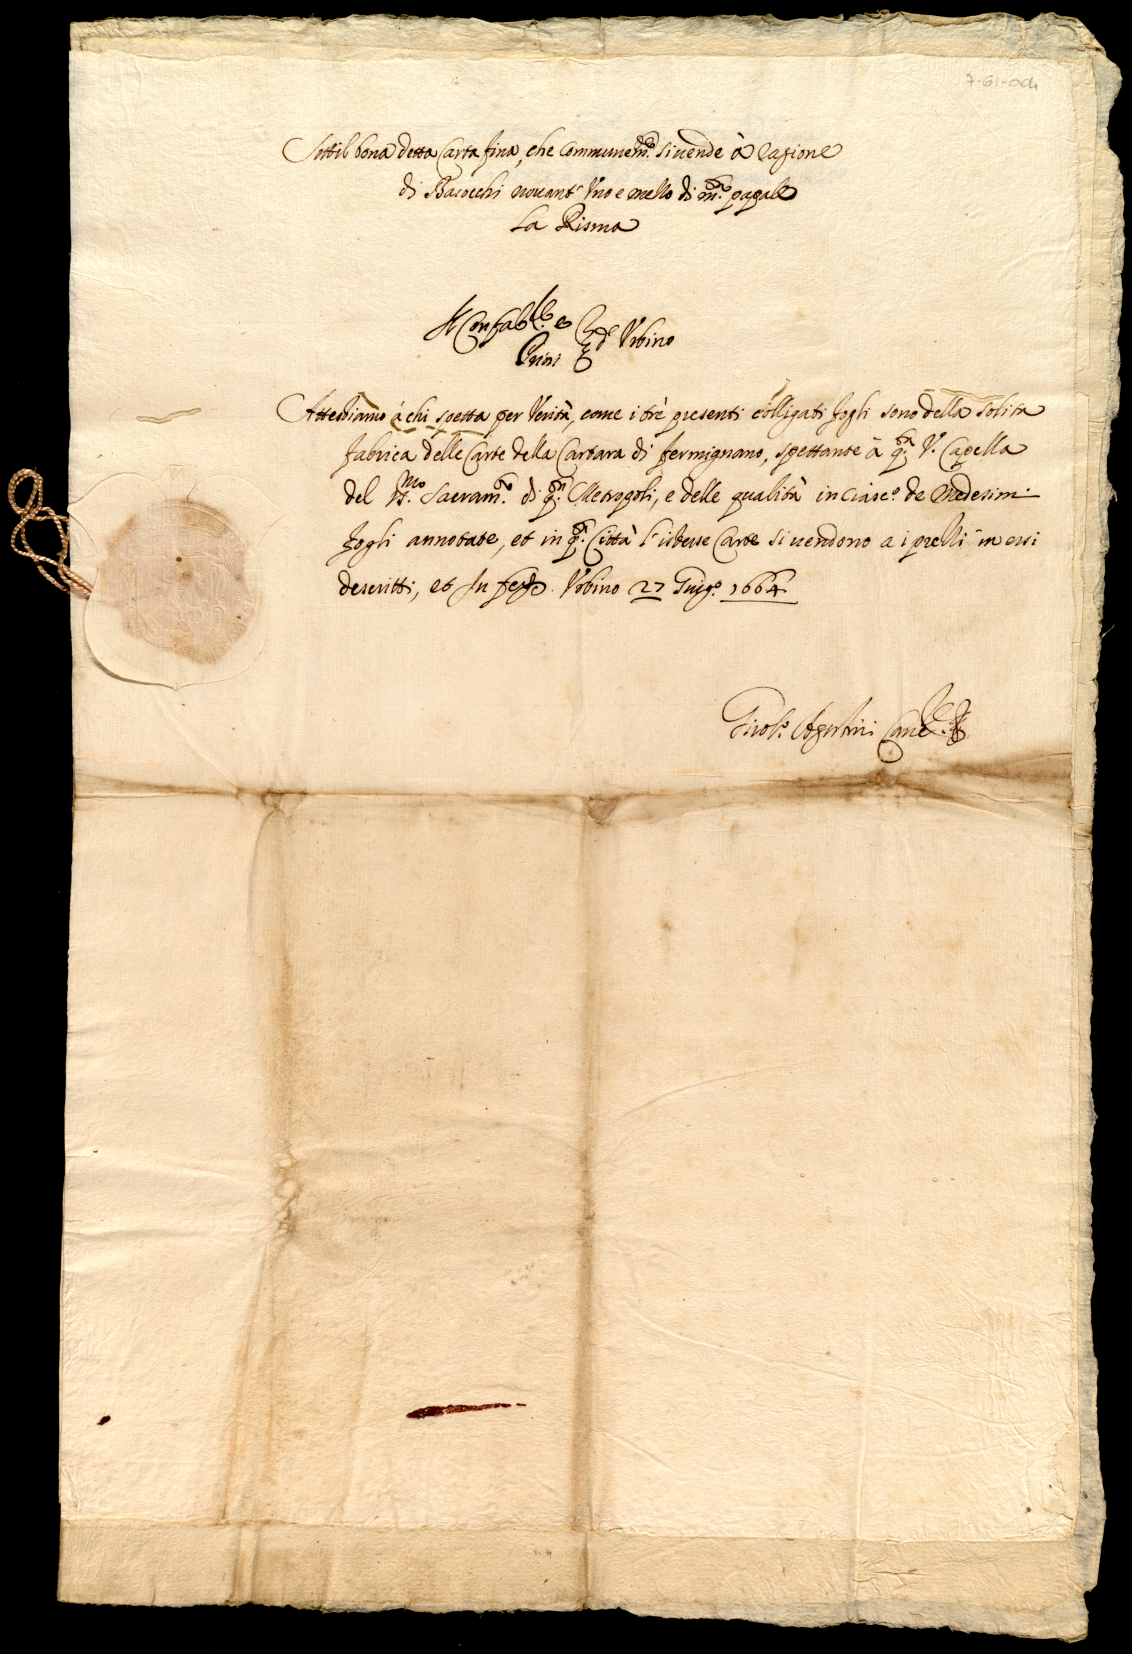 7-61-04
Sottil bona detta Carta fina, che Communem.te si uende à ragione
di Baiocchi nouant' Vno e mezzo di m.ta papale
La Risma
Il Confal.re e
Priori d' Vrbino
Attestiamo à chi spetta per Verità, come i trè presenti colligati fogli sono della solita
fabrica delle Carte della Cartara di fermignano, spettante à q.sta V. Capella
del SS.mo Sacram.to di q.sta Metropoli, e delle qualità in ciasc.o de Medesimi
fogli annotate, et in q.sta Città l' istesse Carte si uendono a i prezzi in essi
descritti, et In fede Vrbino 27 Giug.o 1664
Girol.o Agostini Canc.re